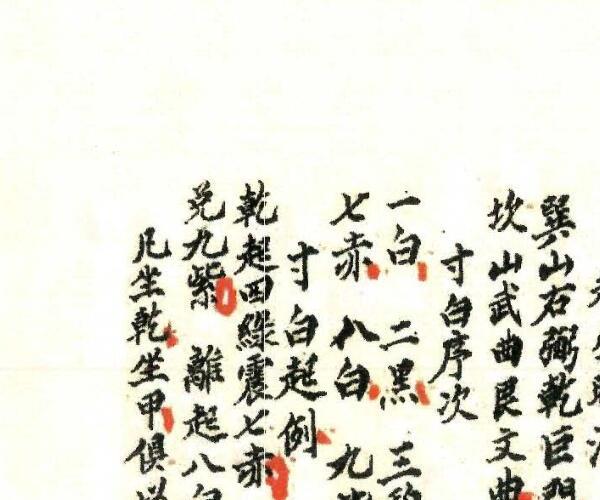 巽山右弼乾巨門
坎山武曲艮文曲
寸白序次
一白 二黑 三碧
七赤 八白 九紫
寸白起例
乾起四綠震七赤
兌九紫 離起八白
凡坐乾坐甲俱從